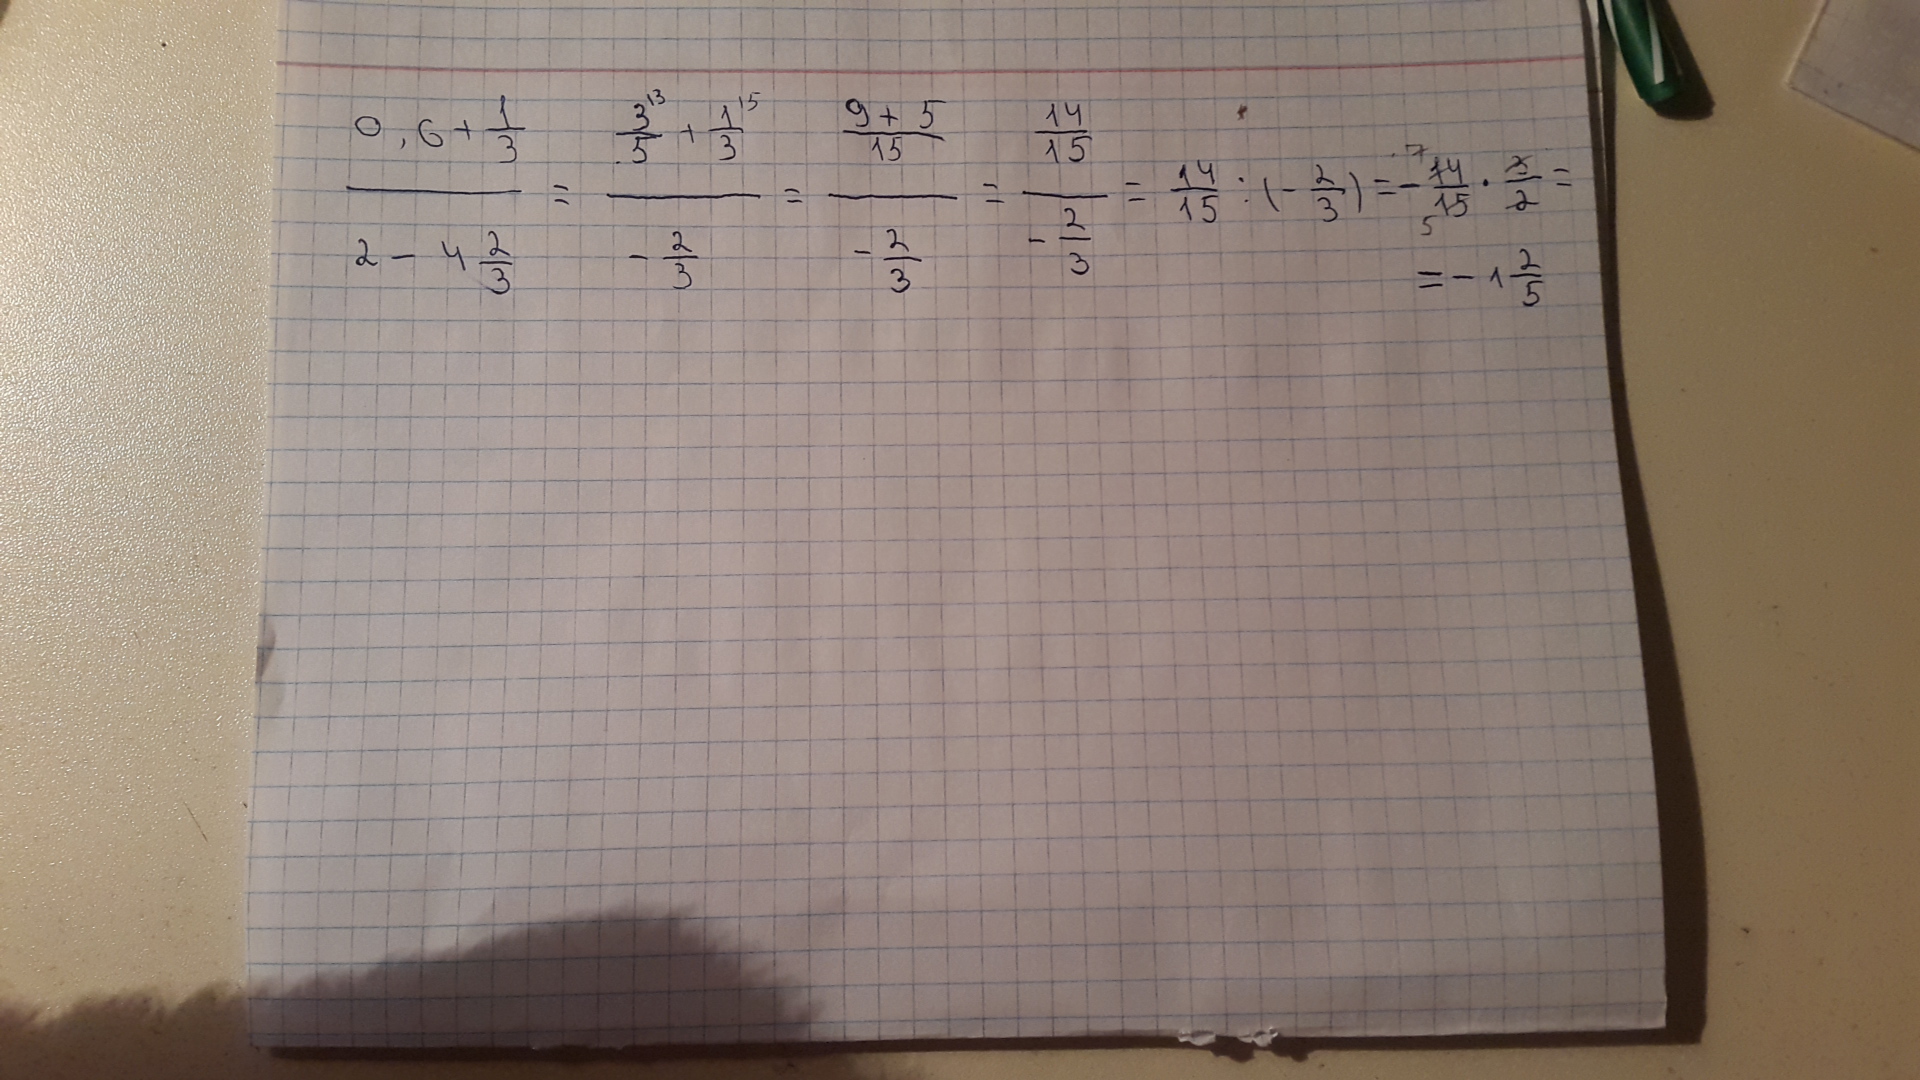 0,6 + 1/3 / 2 - 4 2/3 = 3/5^13 + 1/3^15 / - 2/3 = 9 + 5/15 / - 2/3 = 14/15 / - 2/3 = 14/15 : (- 2/3) = - 14/15 · 3/2 =
= - 1 2/5